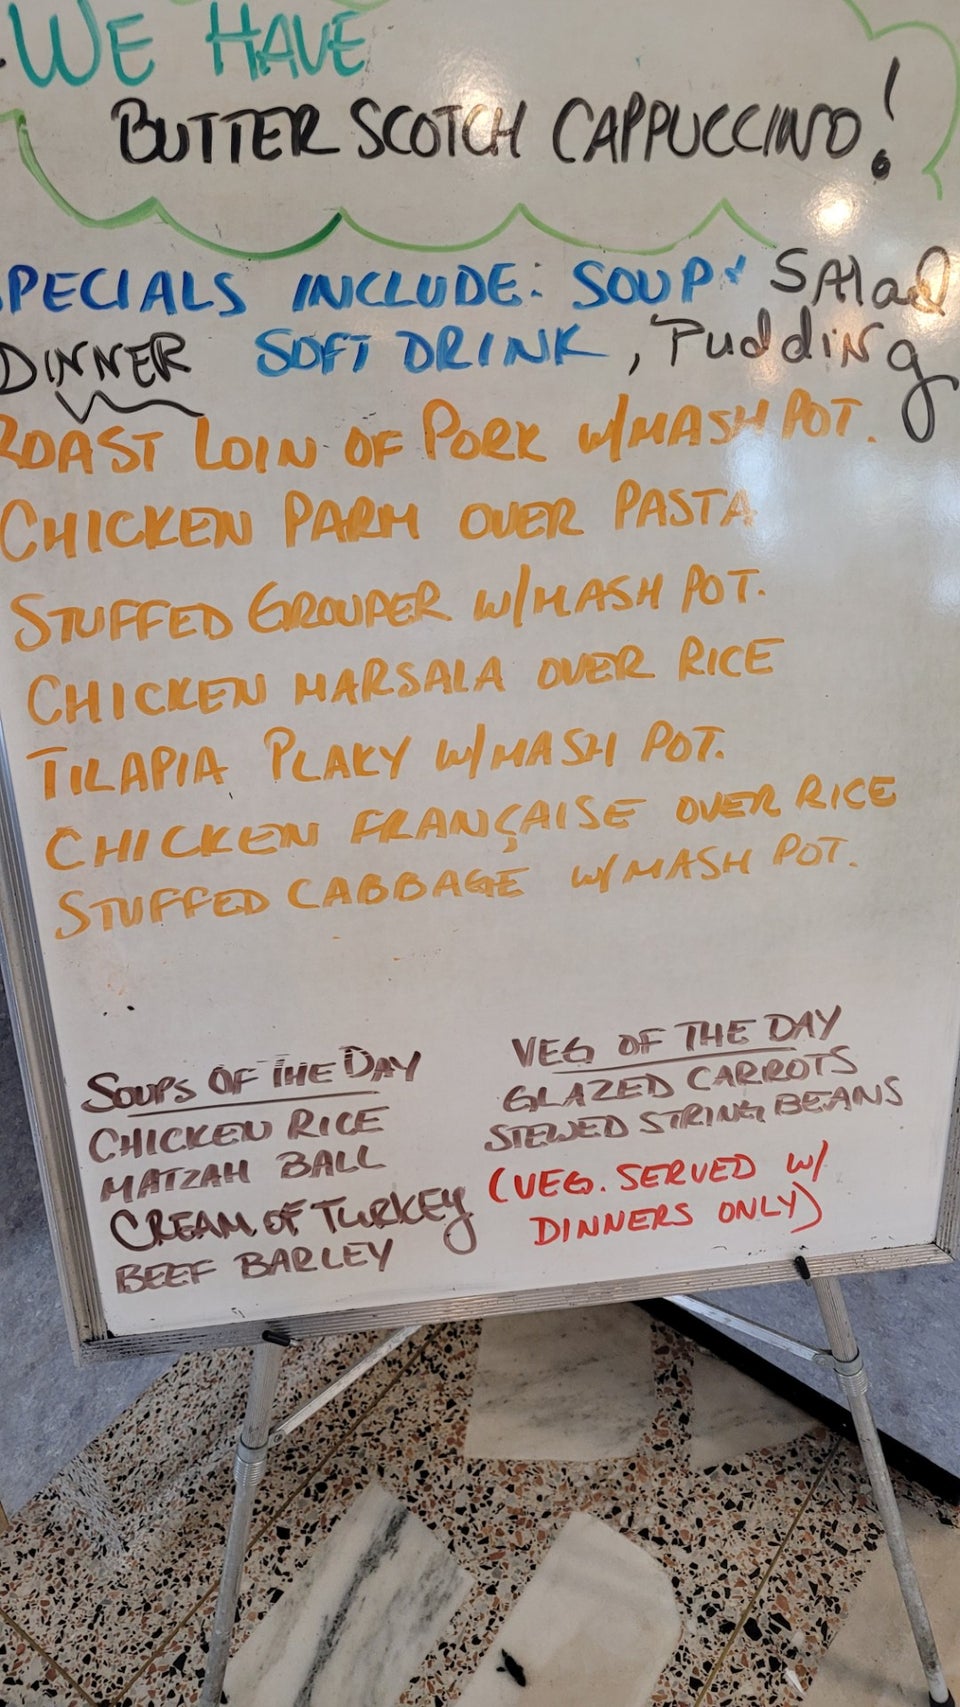 WE HAVE
BUTTER SCOTCH CAPPUCCINO!
SPECIALS INCLUDE: SOUP & Salad
DINNER SOFT DRINK, Pudding
ROAST LOIN OF PORK W/MASH POT.
CHICKEN PARM OVER PASTA
STUFFED GROUPER W/MASH POT.
CHICKEN MARSALA OVER RICE
TILAPIA PLAKY W/MASH POT.
CHICKEN FRANÇAISE OVER RICE
STUFFED CABBAGE W/MASH POT.
SOUPS OF THE DAY
CHICKEN RICE
MATZAH BALL
CREAM OF TURKEY
BEEF BARLEY
VEG OF THE DAY
GLAZED CARROTS
STEWED STRING BEANS
(VEG. SERVED W/
DINNERS ONLY)